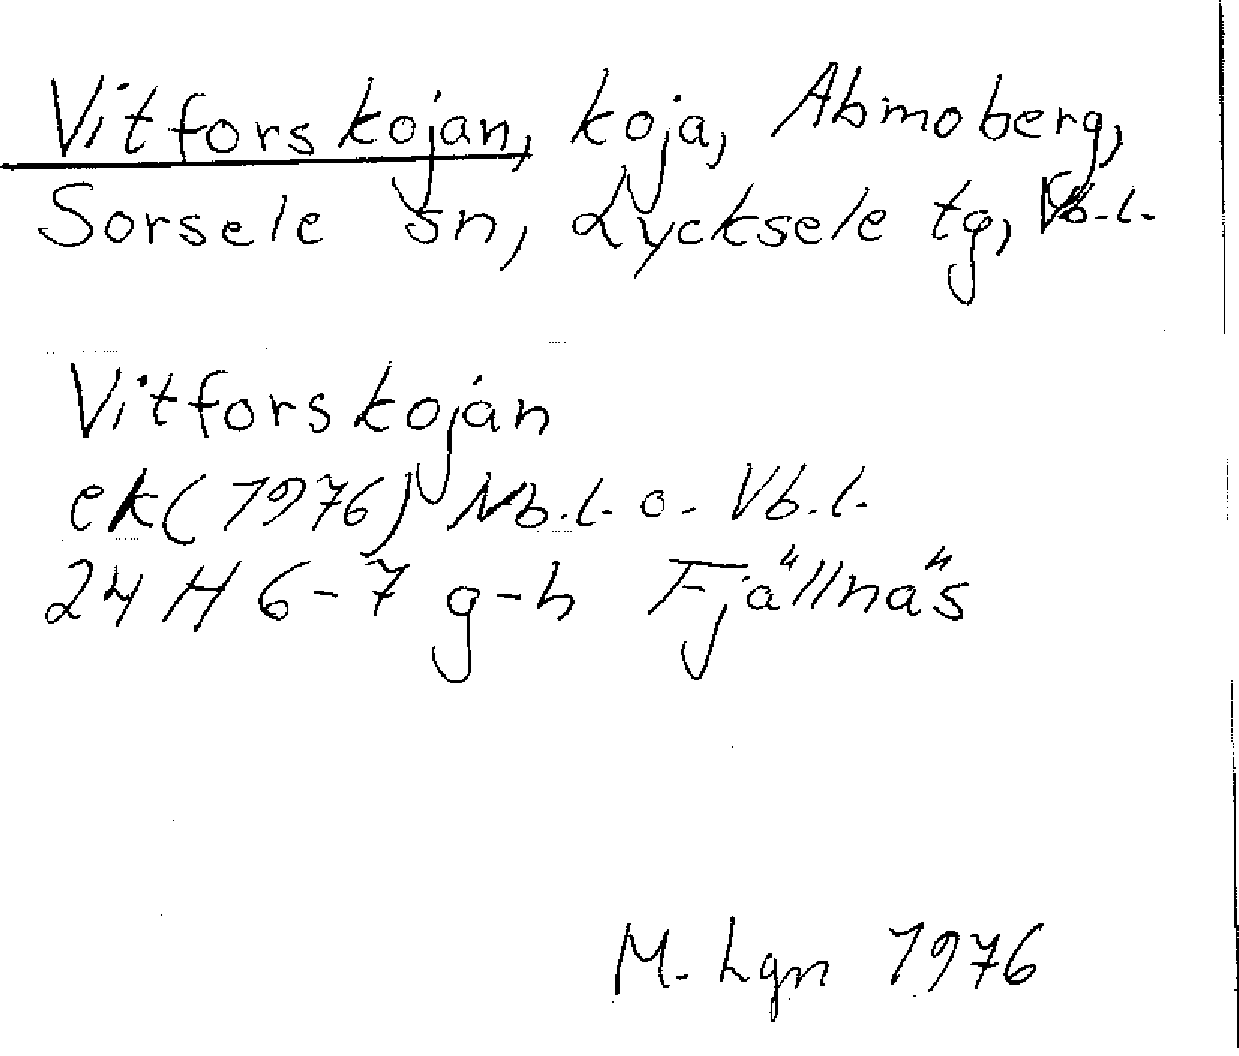 Vitforskojan, koja, Abmoberg,
Sorsele sn, Lycksele tg, Vb.l.
Vitforskojan
ek(1976) Nb.l. o. Vb.l.
24 H 6-7 g-h Fjällnäs
M. Lgn 1976